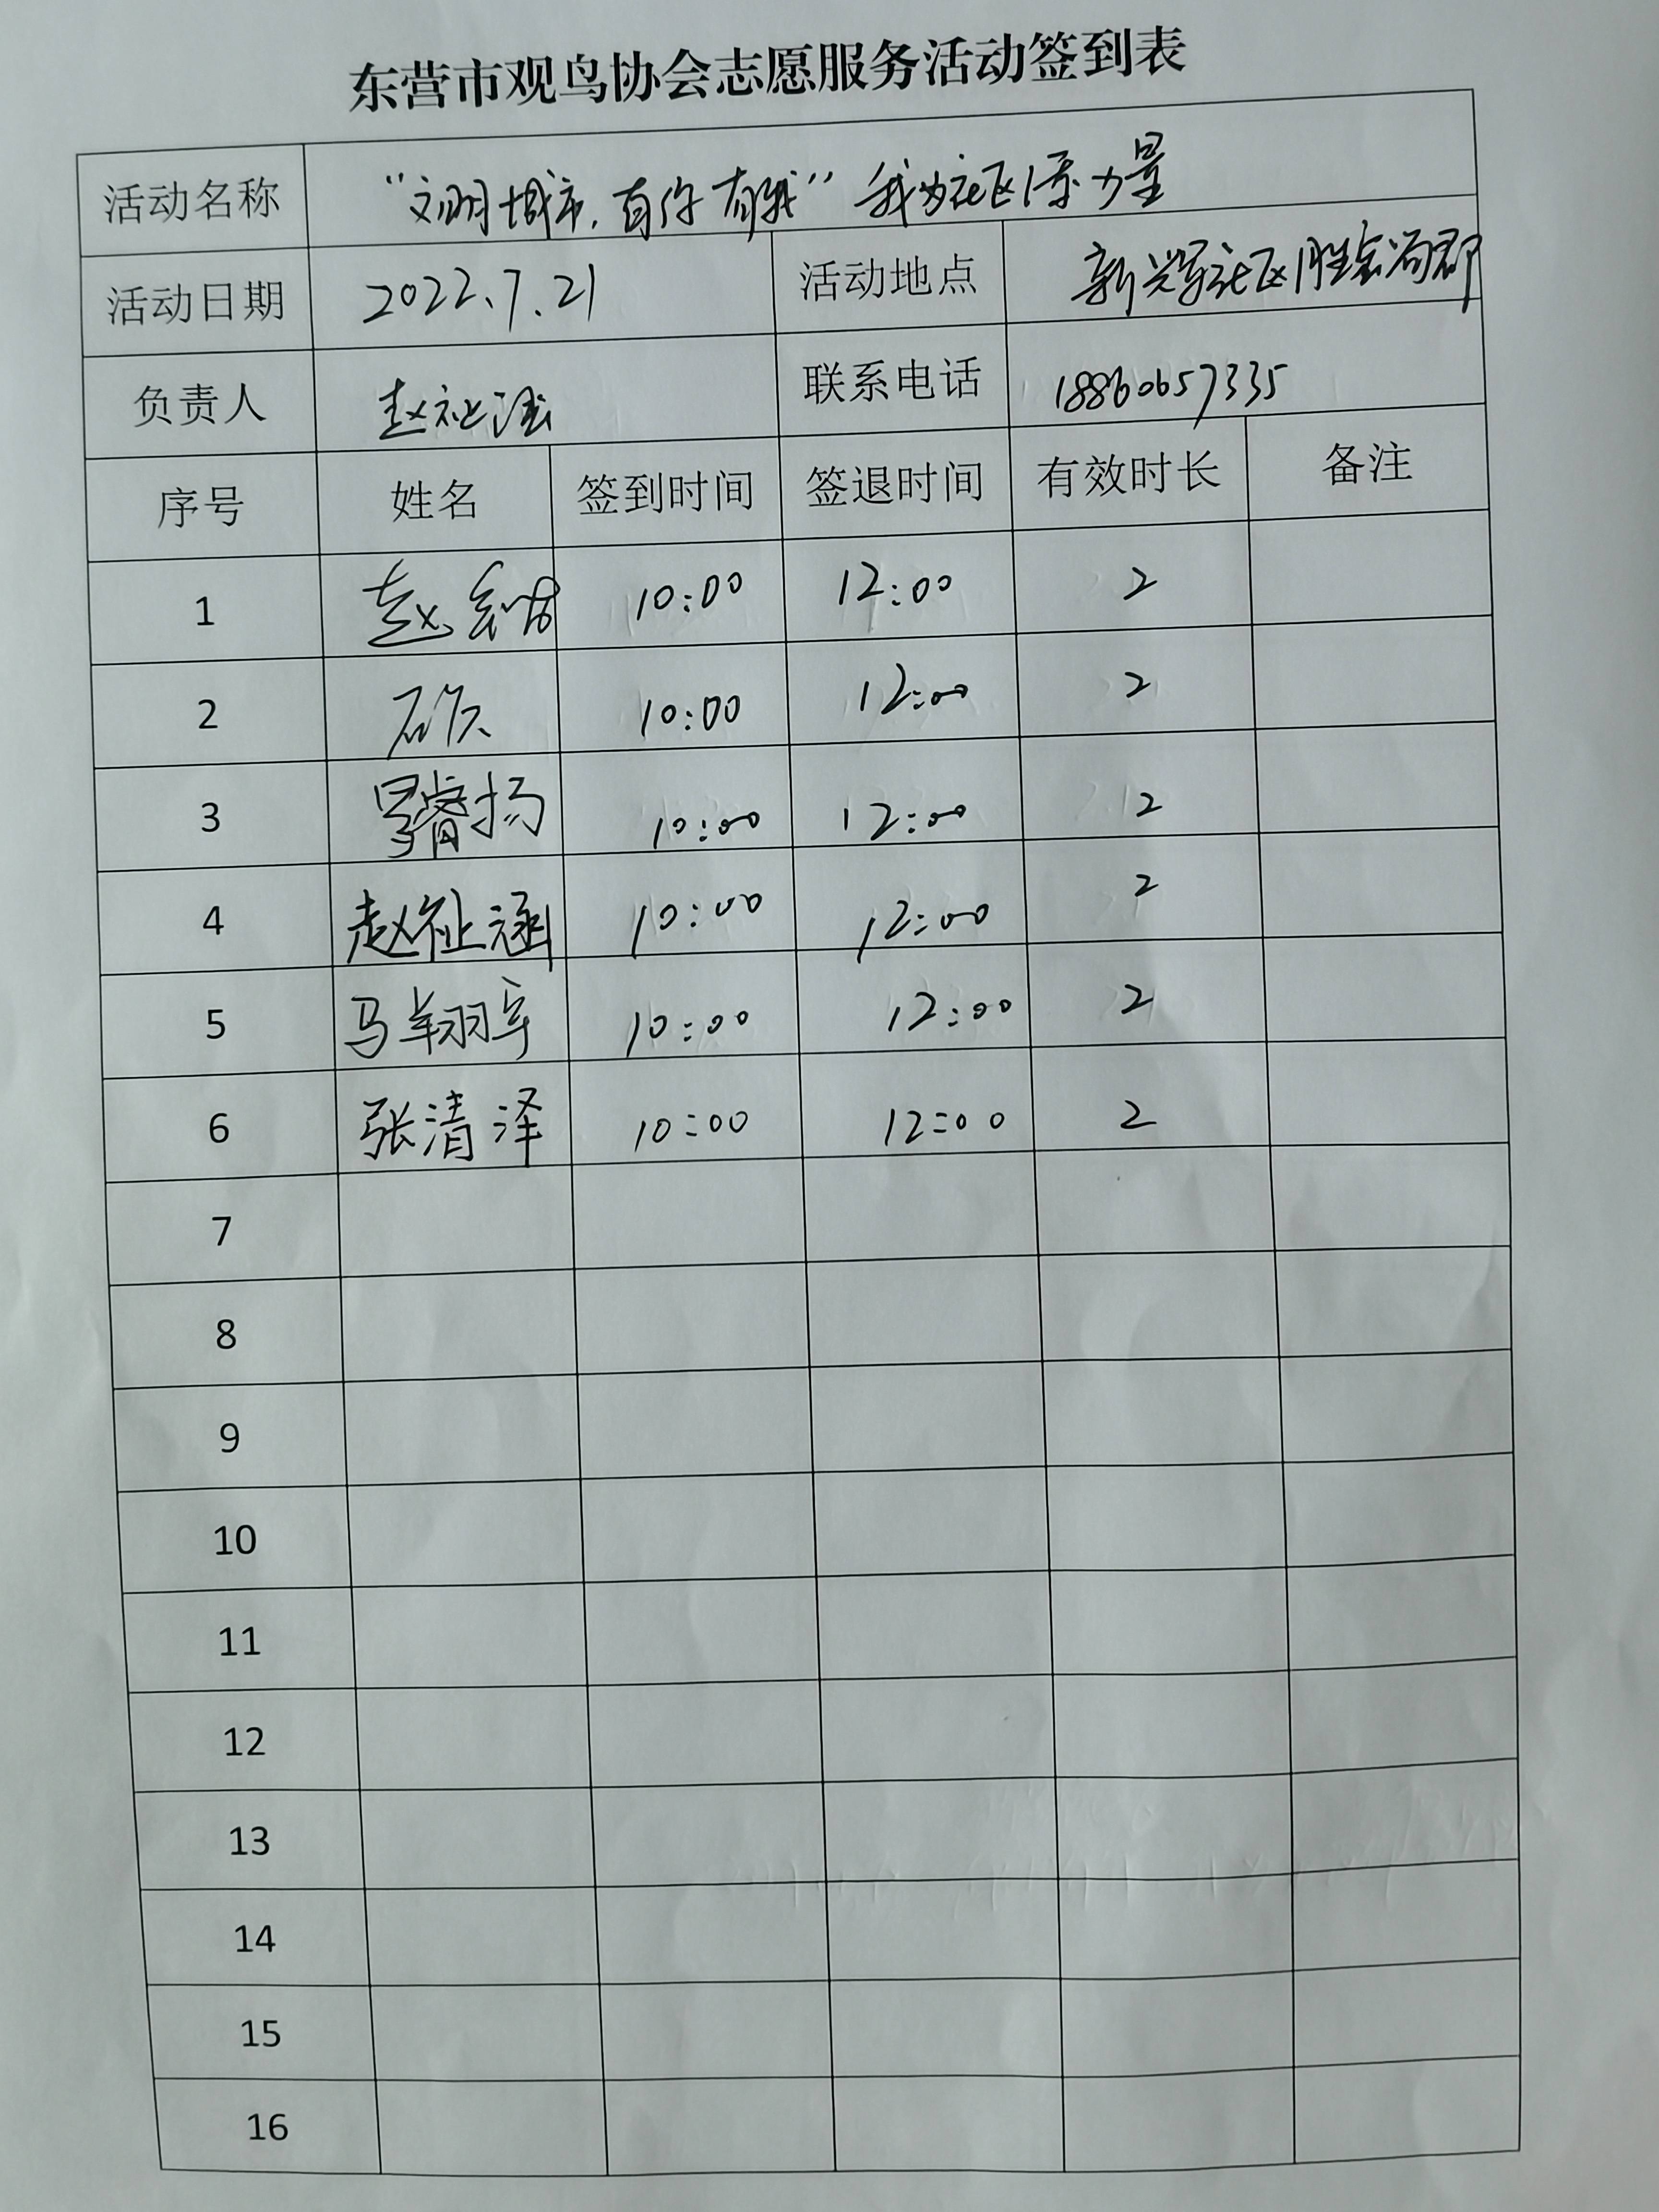 东营市观鸟协会志愿服务活动签到表
活动名称 “文明城市,有你有我” 我为社区添力量
活动日期 2022.7.21 活动地点 新兴社区胜宏尚郡
负责人 赵祉涵 联系电话 18860657335
序号 姓名 签到时间 签退时间 有效时长 备注
1 赵 10:00 12:00 2
2 10:00 12:00 2
3 睿扬 10:00 12:00 2
4 赵祉涵 10:00 12:00 2
5 马翔宇 10:00 12:00 2
6 张清泽 10:00 12:00 2
7
8
9
10
11
12
13
14
15
16